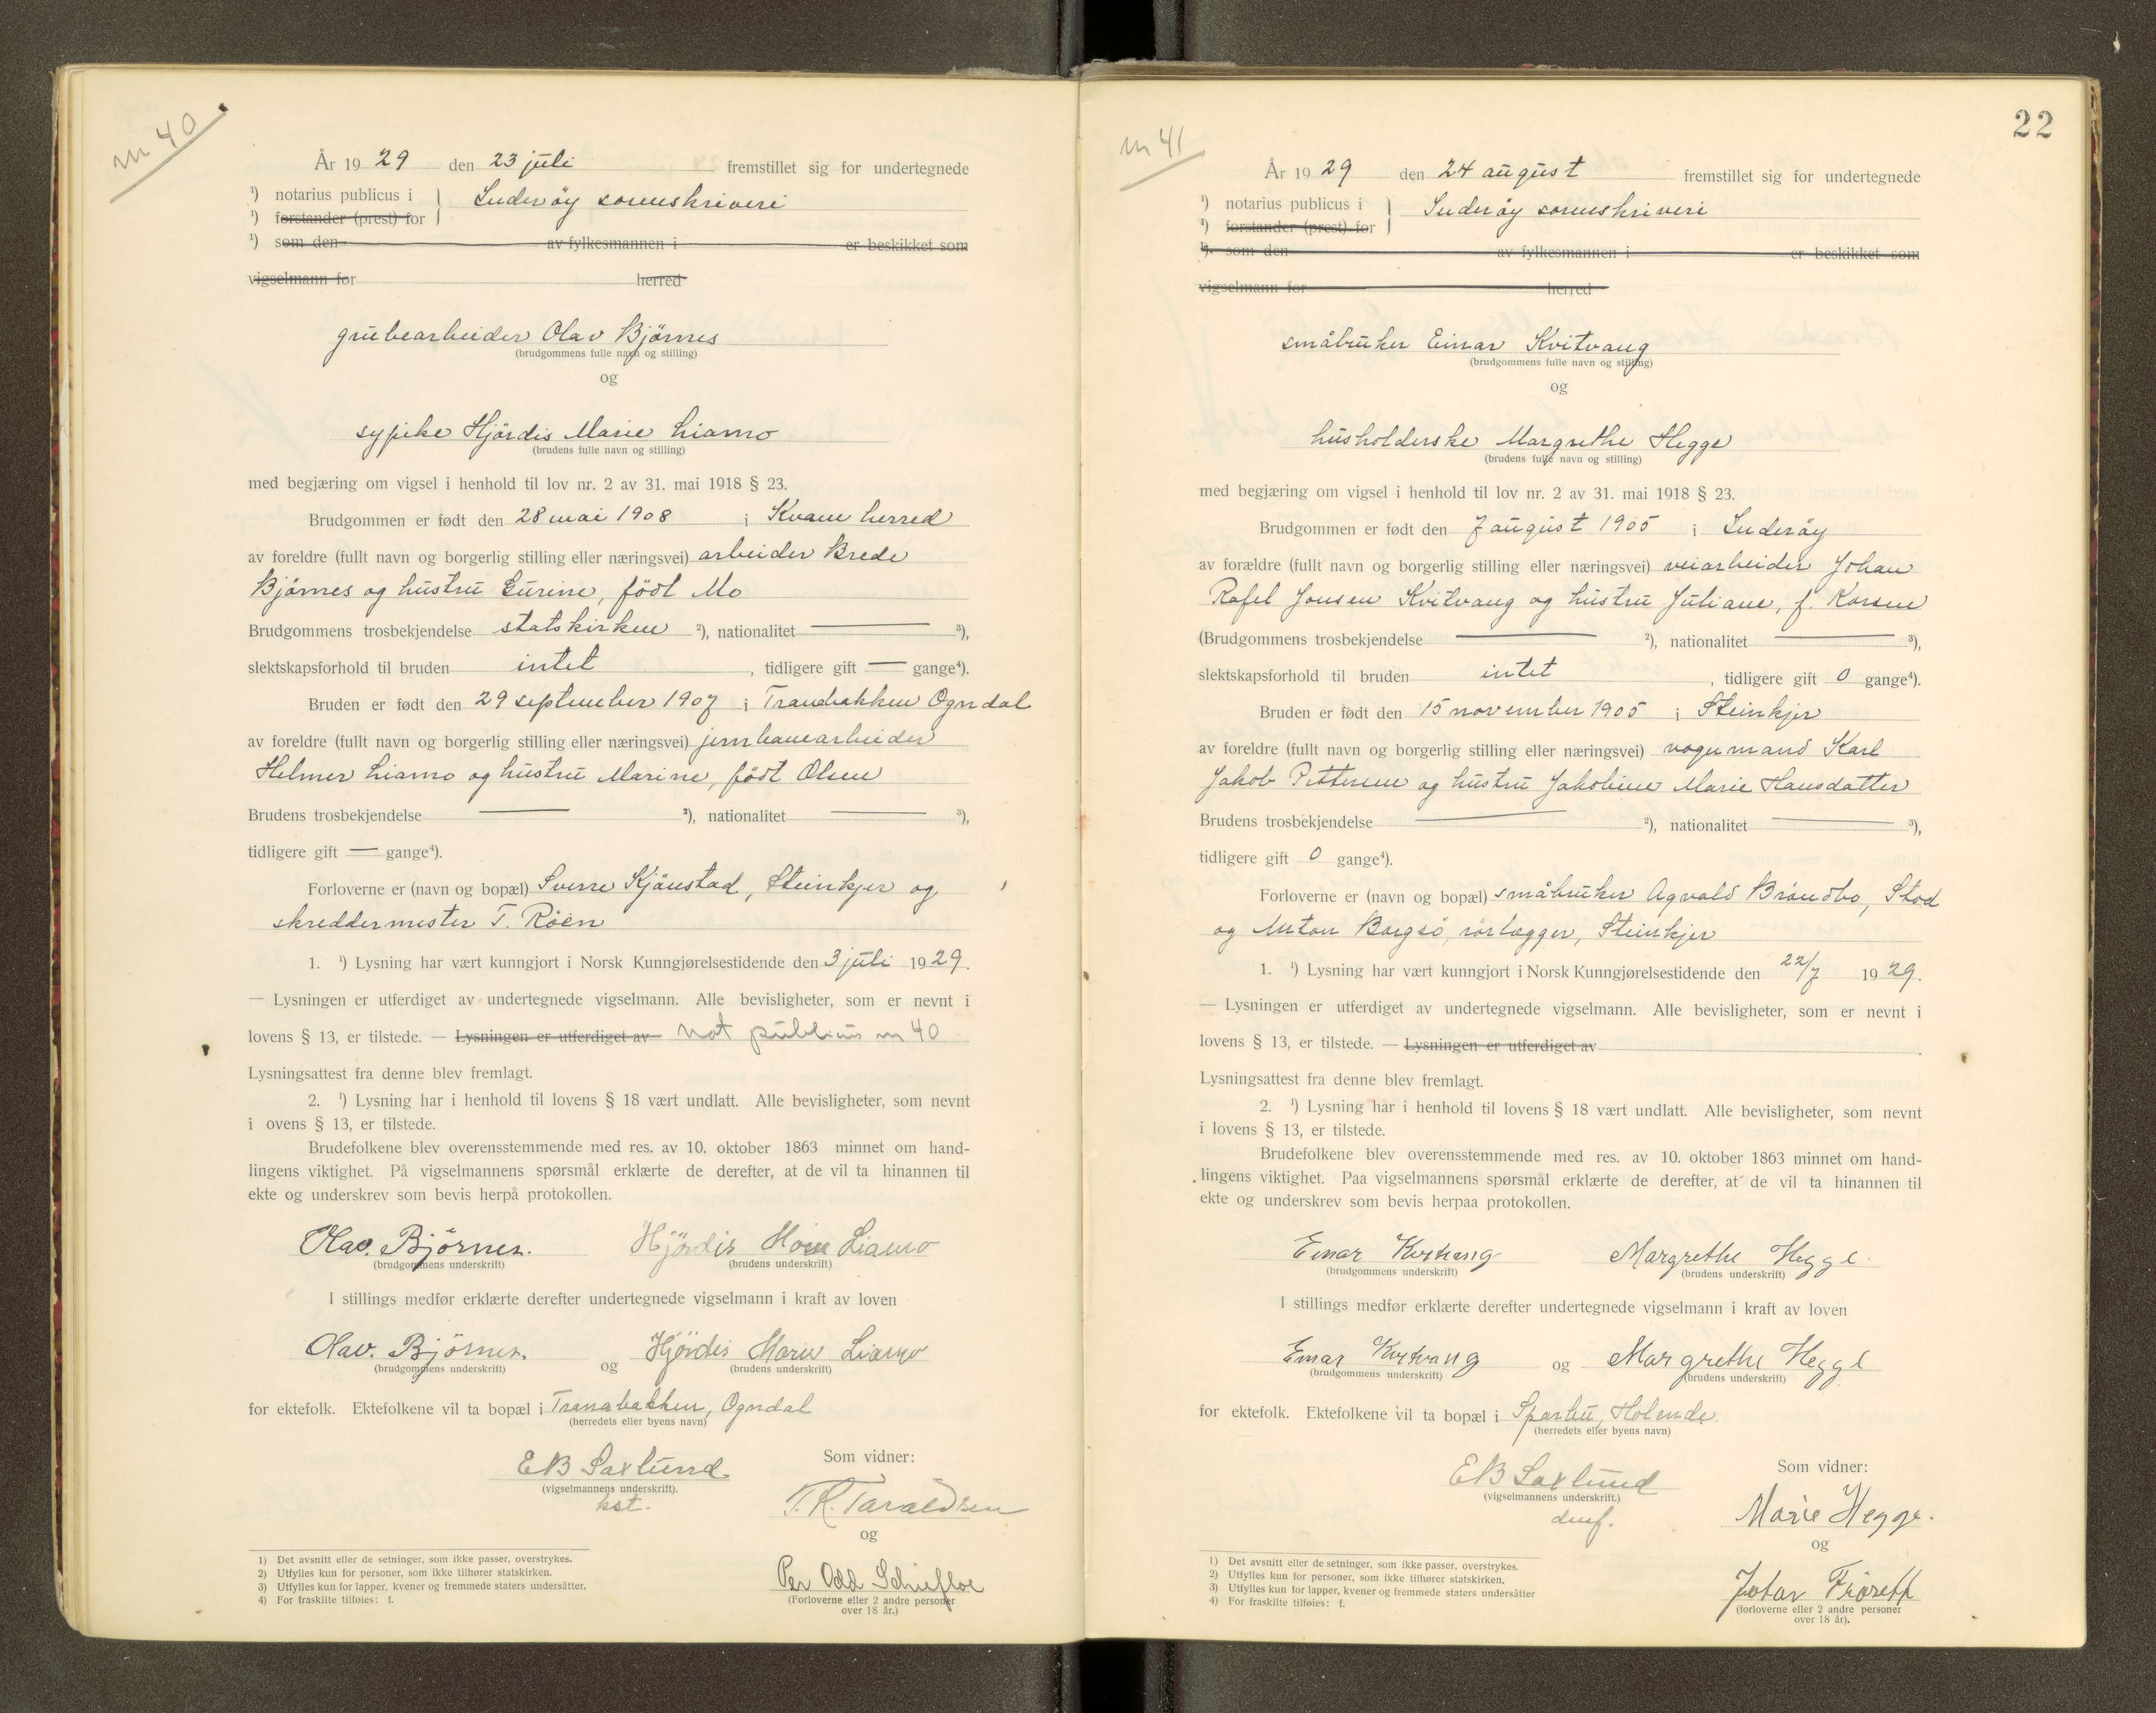 nr 40
År 19 29 den 23 juli fremstillet sig for undertegnede
¹) notarius publicus i
Inderøy sorenskriveri
¹) forstander (prest) for
¹) som den av fylkesmannen i er beskikket som
vigselmann for herred
grubearbeider Olav Bjørnes
(brudgommens fulle navn og stilling)
og
sypike Hjørdis Marie Liamo
(brudens fulle navn og stilling)
med begjæring om vigsel i henhold til lov nr. 2 av 31. mai 1918 § 23.
Brudgommen er født den 28 mai 1908 i Kvam herred
av foreldre (fullt navn og borgerlig stilling eller næringsvei) arbeider Brede
Bjørnes og hustru Gurine, født Mo
Brudgommens trosbekjendelse statskirken ²), nationalitet — ³),
slektskapsforhold til bruden intet, tidligere gift — gange⁴).
Bruden er født den 29 september 1907 i Tranabakken Ogndal
av foreldre (fullt navn og borgerlig stilling eller næringsvei) jernbanearbeider
Helmer Liamo og hustru Marine, født Olsen
Brudens trosbekjendelse — ²), nationalitet — ³),
tidligere gift — gange⁴).
Forloverne er (navn og bopæl) Sverre Kjønstad, Steinkjer og
skreddermester T. Røen
1. ¹) Lysning har vært kunngjort i Norsk Kunngjørelsestidende den 3 juli 1929.
— Lysningen er utferdiget av undertegnede vigselmann. Alle bevisligheter, som er nevnt i
lovens § 13, er tilstede. — Lysningen er utferdiget av not publicus nr 40
Lysningsattest fra denne blev fremlagt.
2. ¹) Lysning har i henhold til lovens § 18 vært undlatt. Alle bevisligheter, som nevnt
i ovens § 13, er tilstede.
Brudefolkene blev overensstemmende med res. av 10. oktober 1863 minnet om hand-
lingens viktighet. På vigselmannens spørsmål erklærte de derefter, at de vil ta hinannen til
ekte og underskrev som bevis herpå protokollen.
Olav. Bjørnes. Hjördis Marie Liamo
(brudgommens underskrift) (brudens underskrift)
I stillings medfør erklærte derefter undertegnede vigselmann i kraft av loven
Olav. Bjørnes. og Hjördis Marie Liamo
(brudgommens underskrift) (brudens underskrift)
for ektefolk. Ektefolkene vil ta bopæl i Tranabakken, Ogndal
(herredets eller byens navn)
EB Saxlund Som vidner:
(vigselmannens underskrift).
kst. T. R. Taraldsen
og
Per Odd Schiefloe
(Forloverne eller 2 andre personer
over 18 år.)
1) Det avsnitt eller de setninger, som ikke passer, overstrykes.
2) Utfylles kun for personer, som ikke tilhører statskirken.
3) Utfylles kun for lapper, kvener og fremmede staters undersåtter.
4) For fraskilte tilføies: f.
22
nr 41
År 19 29 den 24 august fremstillet sig for undertegnede
¹) notarius publicus i
Inderøy sorenskriveri
¹) forstander (prest) for
¹). som den av fylkesmannen i er beskikket som
vigselmann for herred
småbruker Einar Kvitvang
(brudgommens fulle navn og stilling)
og
husholderske Margrethe Hegge
(brudens fulle navn og stilling)
med begjæring om vigsel i henhold til lov nr. 2 av 31. mai 1918 § 23.
Brudgommen er født den 7 august 1905 i Inderøy
av forældre (fullt navn og borgerlig stilling eller næringsvei) veiarbeider Johan
Rafel Jonsen Kvitvang og hustru Juliane, f. Korsen
(Brudgommens trosbekjendelse — ²), nationalitet — ³),
slektskapsforhold til bruden intet, tidligere gift 0 gange⁴).
Bruden er født den 15 november 1905 i Steinkjer
av foreldre (fullt navn og borgerlig stilling eller næringsvei) vognmand Karl
Jakob Pettersen og hustru Jakobine Marie Hansdatter
Brudens trosbekjendelse — ²), nationalitet — ³),
tidligere gift 0 gange⁴).
Forloverne er (navn og bopæl) småbruker Agvald Brandbo, Stod
og Anton Borgsø, rørlægger, Steinkjer
1. ¹) Lysning har vært kunngjort i Norsk Kunngjørelsestidende den 22/7 1929.
— Lysningen er utferdiget av undertegnede vigselmann. Alle bevisligheter, som er nevnt i
lovens § 13, er tilstede. — Lysningen er utferdiget av
Lysningsattest fra denne blev fremlagt.
2. ¹) Lysning har i henhold til lovens § 18 vært undlatt. Alle bevisligheter, som nevnt
i lovens § 13, er tilstede.
Brudefolkene blev overensstemmende med res. av 10. oktober 1863 minnet om hand-
lingens viktighet. Paa vigselmannens spørsmål erklærte de derefter, at de vil ta hinannen til
ekte og underskrev som bevis herpaa protokollen.
Einar Kvitvang Margrethe Hegge.
(brudgommens underskrift) (brudens underskrift)
I stillings medfør erklærte derefter undertegnede vigselmann i kraft av loven
Einar Kvitvang og Margrethe Hegge
(brudgommens underskrift) (brudens underskrift)
for ektefolk. Ektefolkene vil ta bopæl i Sparbu,
(herredets eller byens navn)
EB Saxlund Som vidner:
(vigselmannens underskrift.)
Marie Hegge.
og
(forloverne eller 2 andre personer
over 18 år).
1) Det avsnitt eller de setninger, som ikke passer, overstrykes.
2) Utfylles kun for personer, som ikke tilhører statskirken.
3) Utfylles kun for lapper, kvener og fremmede staters undersåtter
4) For fraskilte tilføies: f.